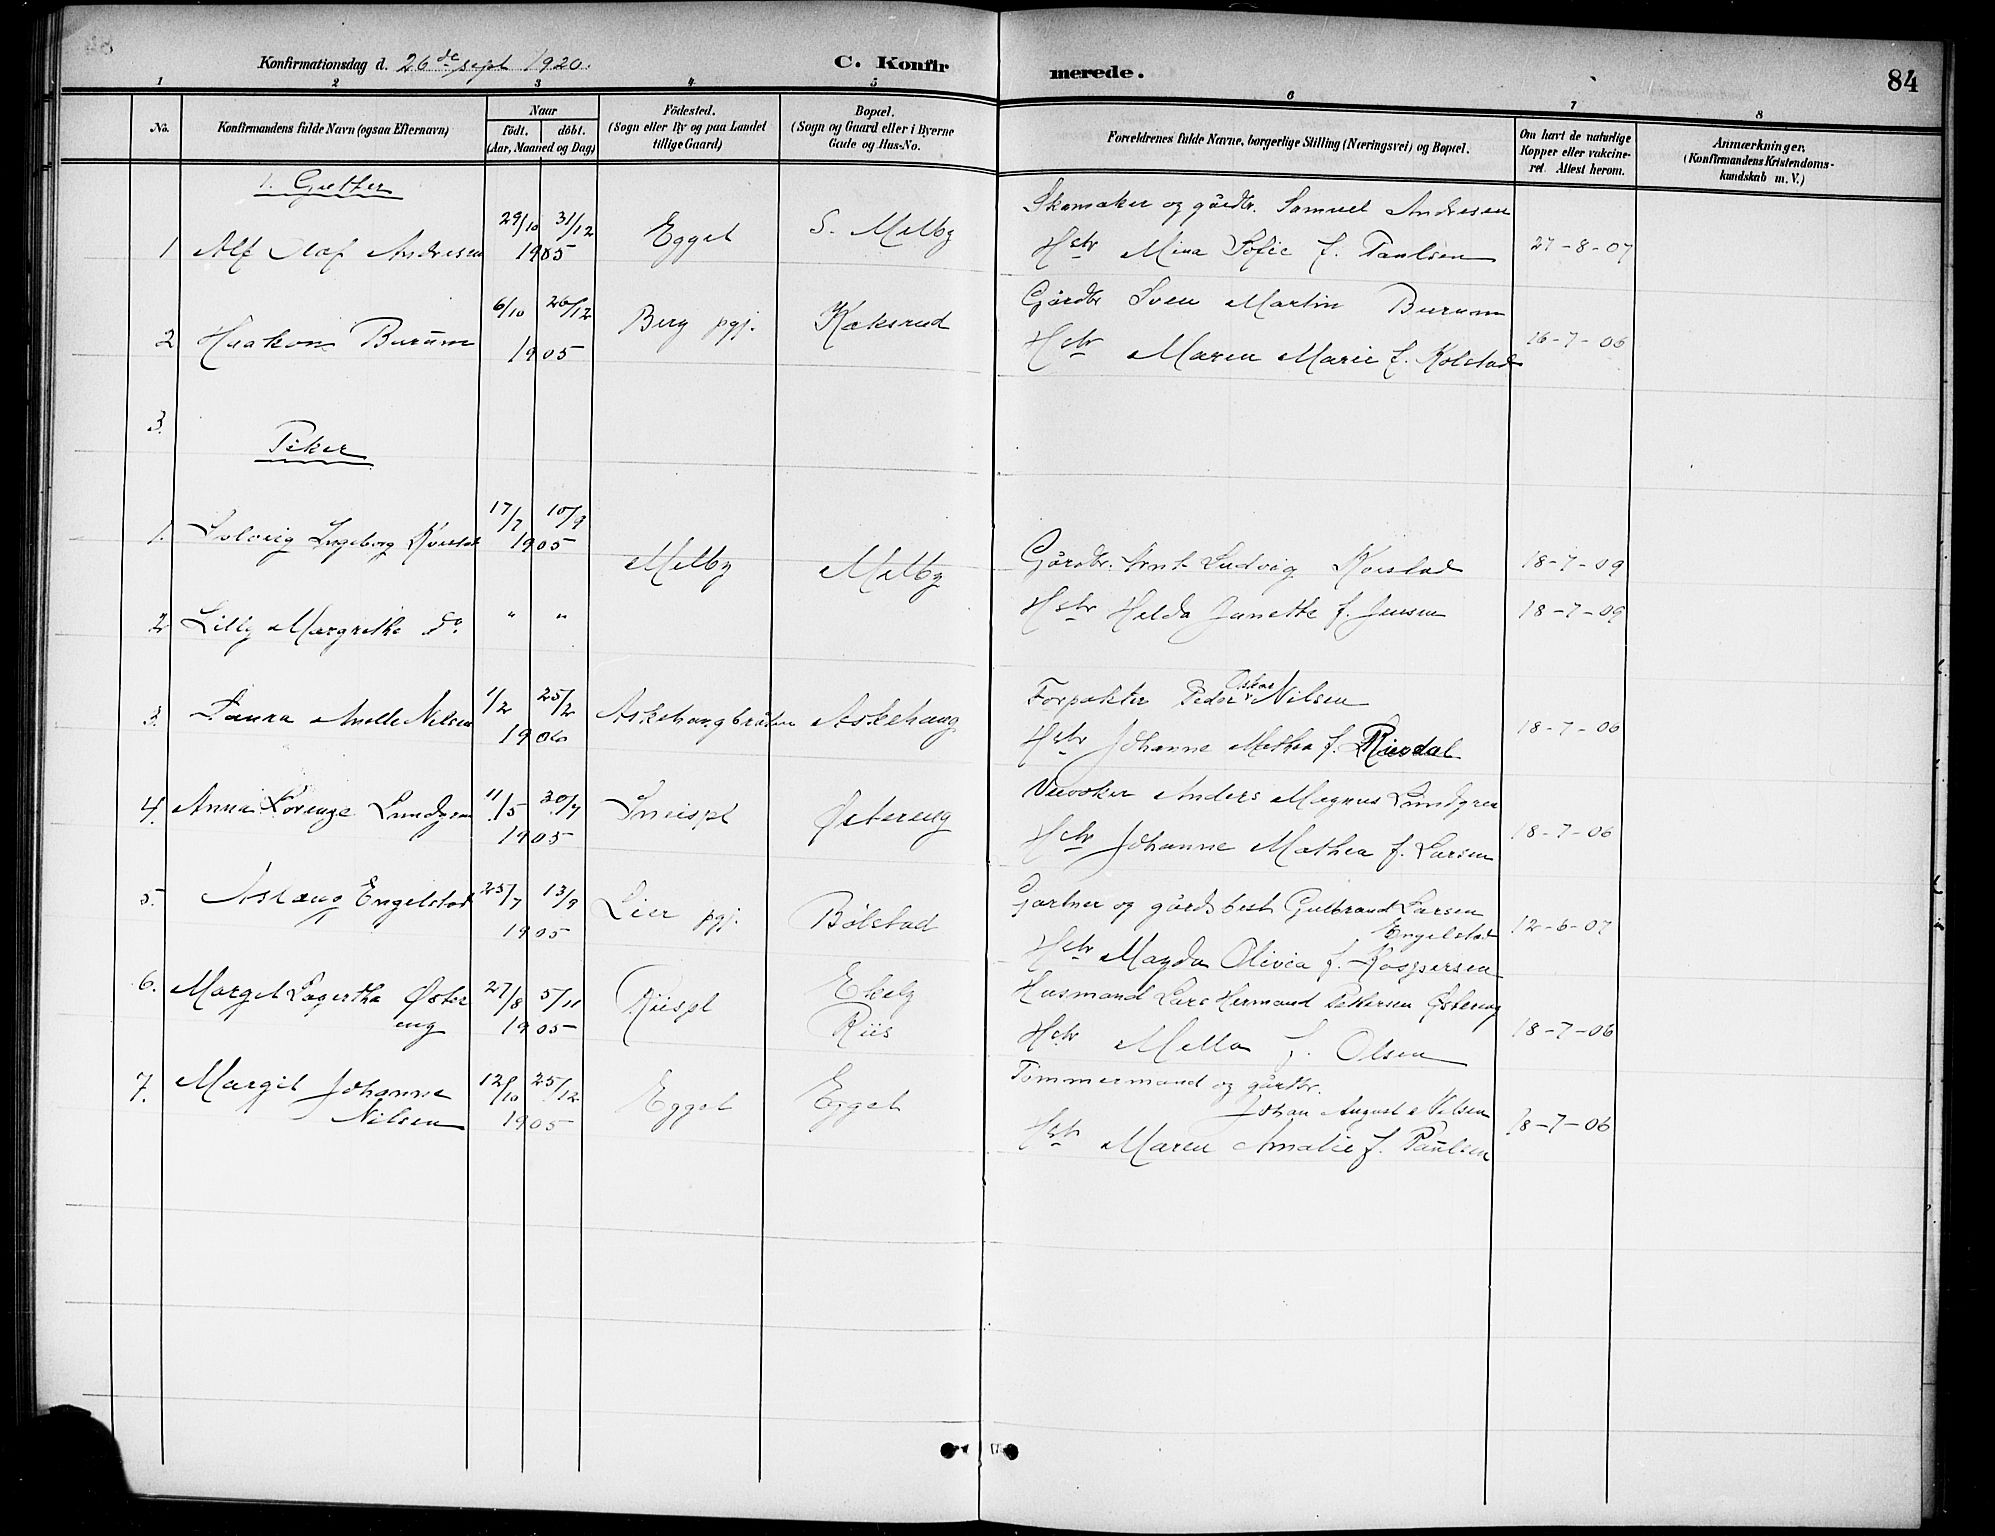 Konfirmationsdag d. 26de sept 1920.
C. Konfir
merede.
84
1 2 3 4 5 6 7 8
No.
Konfirmandens fulde Navn (ogsaa Efternavn)
Naar
födt. döbt.
(Aar, Maaned og Dag)
Födested.
(Sogn eller By og paa Landet
tillige Gaard)
Bopæl.
(Sogn og Gaard eller i Byerne
Gade og Hus-No.
Forældrenes fulde Navne, borgerlige Stilling (Næringsvei) og Bopæl.
Om havt de naturlige
Kopper eller vakcine-
ret. Attest herom.
Anmærkninger.
(Konfirmandens Kristendoms-
kundskab m. V.)
1. Gutter
Skomaker og gårdbr. Samuel Andresen
1 Alf Olaf Andresen 29/10 31/12 1905 Egget S. Melby
Hstr Mina Sofie f. Paulsen 27-8-07
Gårdbr Sven Martin Burum
2 Haakon Burum 6/10 26/12 1905 Berg pgj. Kæksrud
Hstr Maren Marie f. Kolstad 16-7-06
3.
Piker
1. Solveig Ingeborg 17/7 10/9 1905 Melby Melby
Gårdbr. Arnt Ludvig 18-7-09
2 Lilly Margrethe do. " "
Hstr Hilda Janette f. Jensen 18-7-09
Forpakter Peder Oskar Nilsen
3. Laura Nilsen 1/2 25/2 1906 Askehaugbråten Askehaug
Hstr Johanne Mathea f. 18-7-06
Anders Magnus Lundgren
4. Anna Lorenze Lundgren 11/5 30/7 1905 Østereng
Hstr Johanne Mathea f. Larsen 18-7-06
5. Aslaug Engelstad 25/7 13/9 1905 Lier pgj. Bölstad
Gartner og gårdsbest Gulbrand Larsen
Engelstad 12-6-07
Hstr Magda Olivia f. Kaspersen
6. Margit Lagertha Öster
eng 27/8 5/11 1905 Riispl Ekely
Riis
Husmand Lars Hermand Pettersen Østereng
Hstr f. Olsen 18-7-06
7. Margit Johanne
Nilsen 12/10 25/12 1905 Egget Egget
Tømmermand og gårdbr.
Johan August Nilsen
Hstr Maren Amalie f. Paulsen 18-7-06